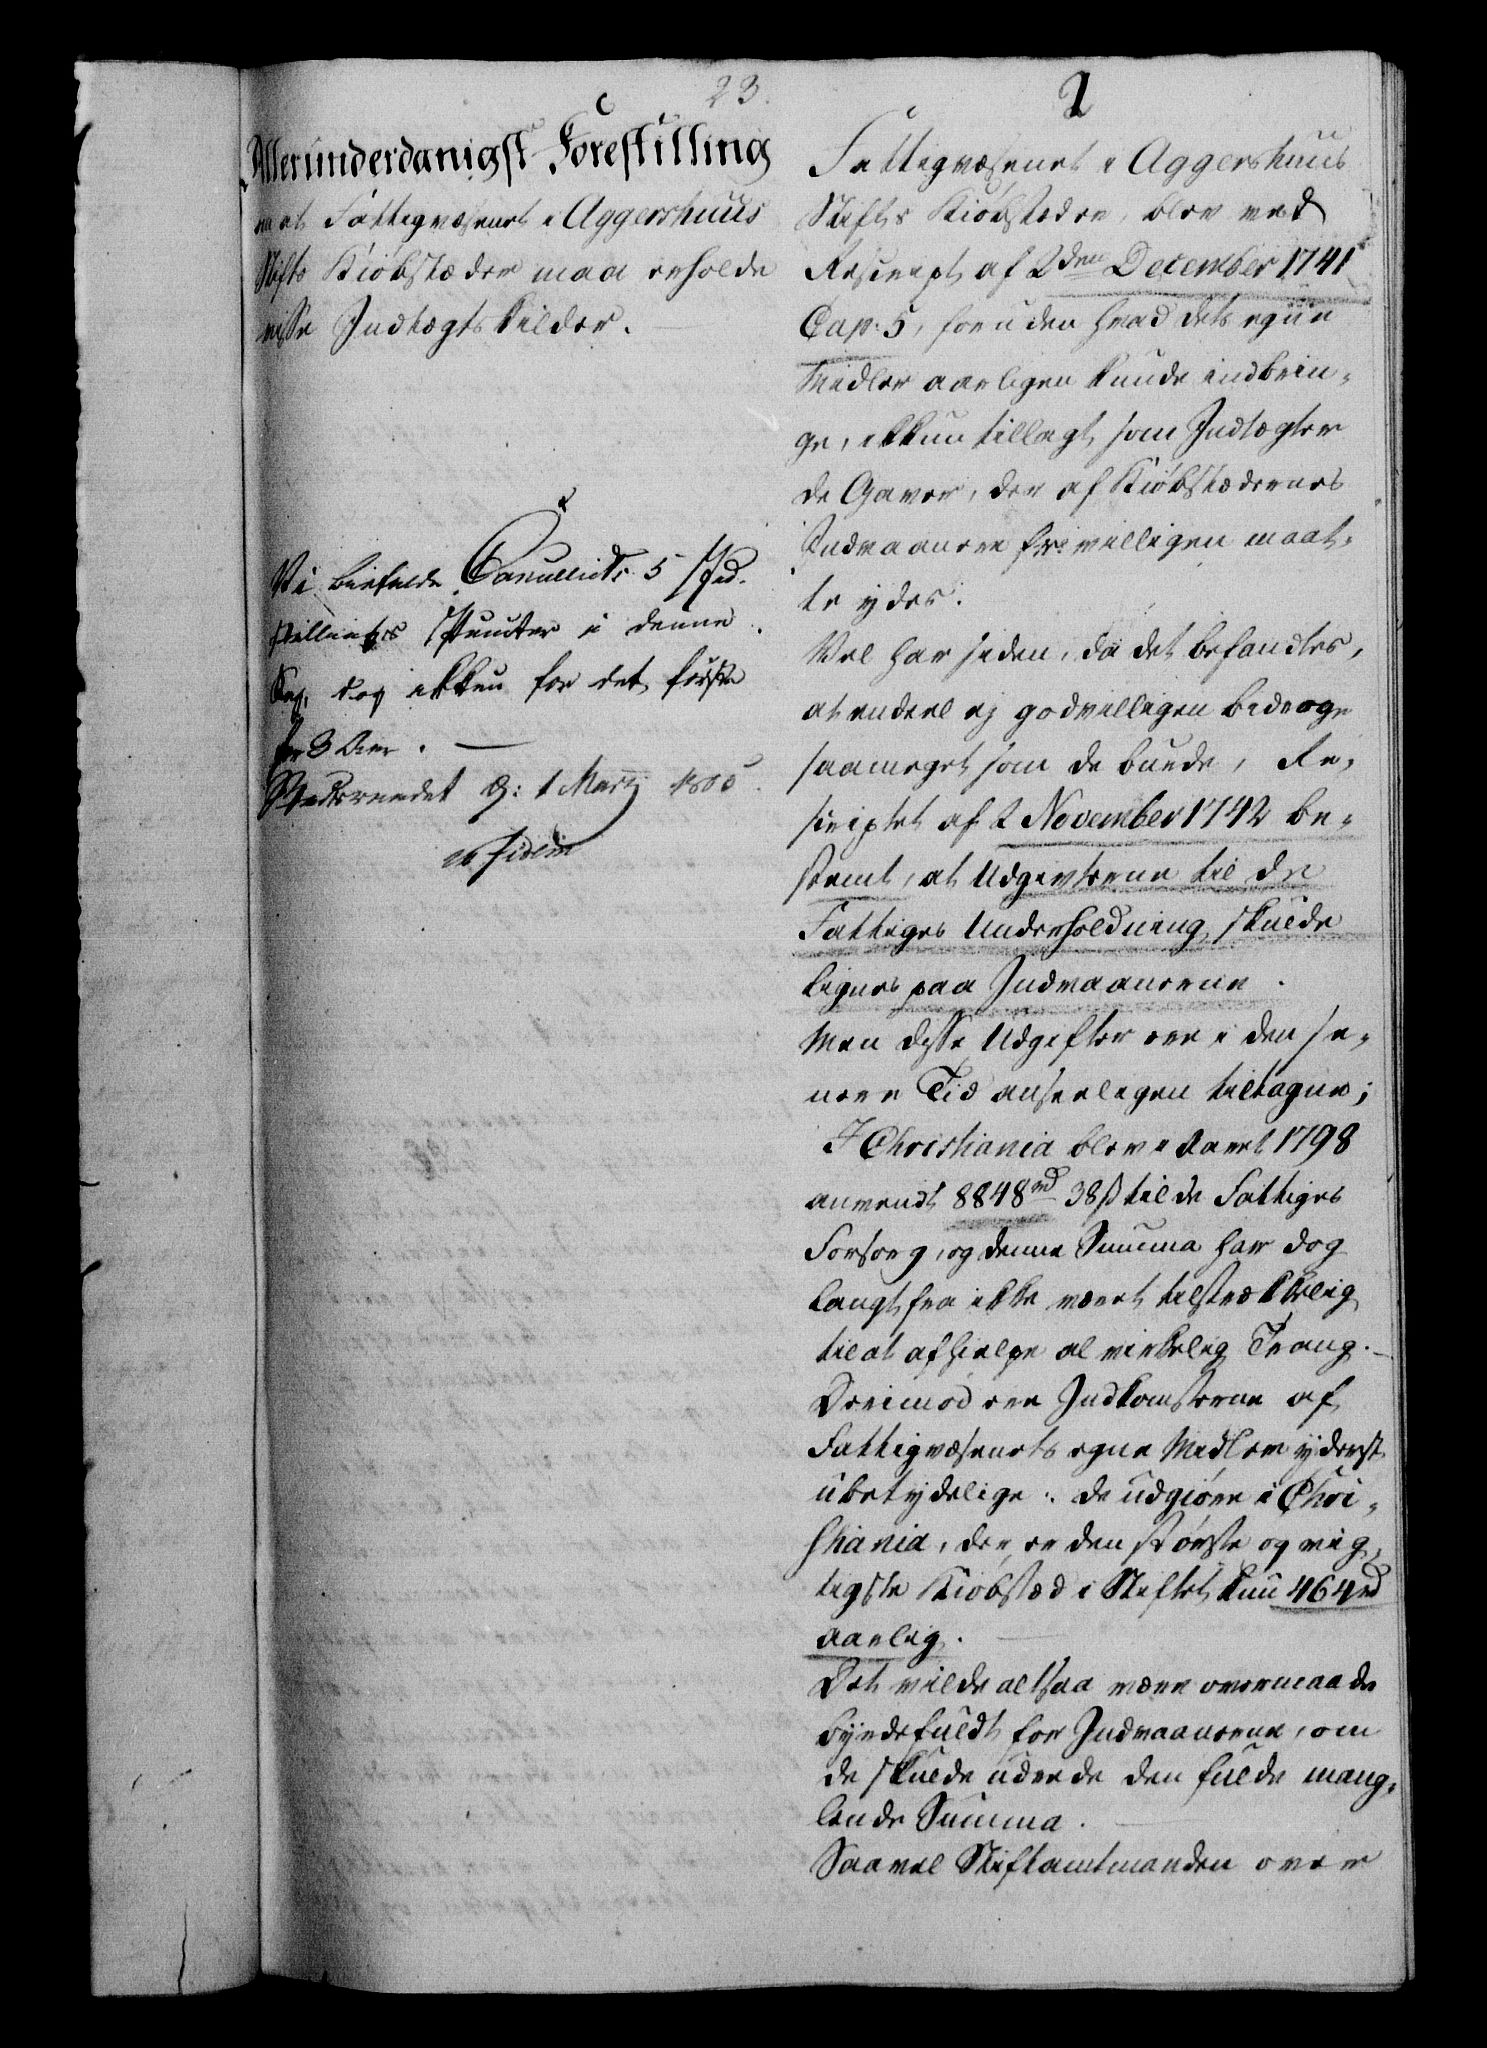 23.
2
Allerunderdanigst Forestilling
om at Fattigvæsenet i Aggershuus
Stifts Kiøbstæder maa erholde
visse Indtægts kilder.
Vi bifalde Cancelliets 5 Ind-
stillings Puncter i denne
Sag, dog ikkun for det første
for 3 Aar.
Frederiksberg d: 1 Martj 1805.
in fidem
Fattigvæsenet i Aggershuus
Stifts Kiøbstæder, blev ved
Rescript af 2den December 1741
Cap: 5, foruden hvad dets egne
Midler aarligen kunde indbrin-
ge, ikkun tillagt som Indtægter
de Gaver, der af Kiøbstædernes
Indvaanere frivilligen maat-
te ydes.
Vel har siden, da det befandtes,
at endeel ej godvilligen bidroge
saameget som de burde, Re-
scriptet af 2 November 1742 be-
stemt, at Udgivterne til de
Fattiges Underholdning skulde
lignes paa Indvaanerne.
Men disse Udgifter ere i den se-
nere Tid anseeligen tiltagne;
I Christiania blev i Aaret 1798
anvendt 8848 rd 38 ß til de Fattiges
Forsorg, og denne Summa har dog
langt fra ikke været tilstrækkelig
til at afhielpe al virkelig Trang.
Derimod ere Indkomsterne af
Fattigvæsenets egne Midler yderst
ubetydelige. De udgiøre i Chri-
stiania, der er den største og vig-
tigste Kiøbstæd i Stiftet kun 464 rd
aarlig.
Det vilde altsaa være overmaade
byrdefuldt for Indvaanerne, om
de skulde udrede den fulde mang-
lende Summa.
Saavel Stiftamtmanden over